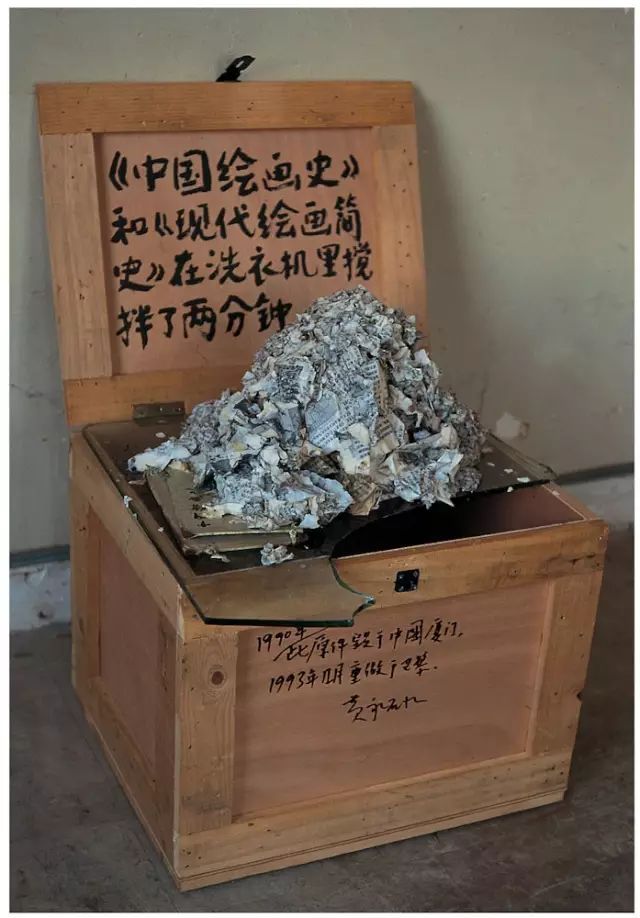 《中国绘画史》
和《现代绘画简
史》在洗衣机里搅
拌了两分钟
1990年
此原件毁于中国厦门,
1993年11月重做于巴黎.
黄永砯